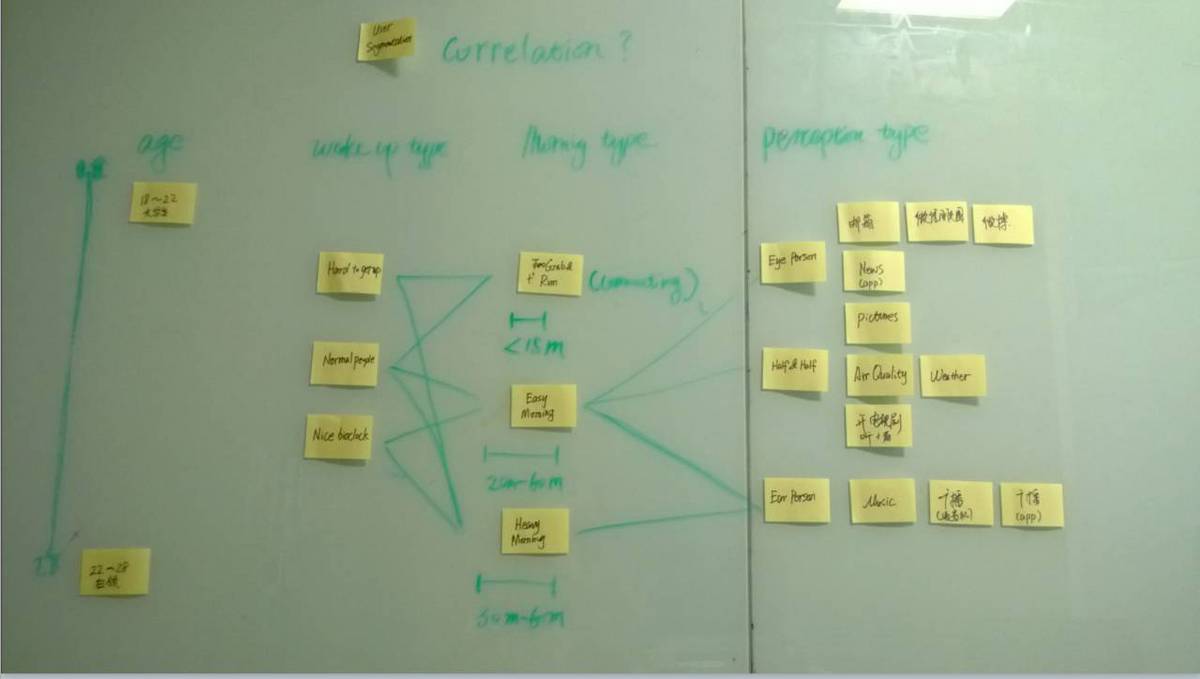 User
Segmentation
Correlation?
age
wake up type
Morning type
perception type
18~22
大学生
22~28
白领
Hard to get up
Normal people
Nice bioclock
& Run
(commuting)
<15m
Easy
Morning
20m-60m
Heavy
Morning
30m-60m
Eye Person
邮箱
微信朋友圈
微博
News
(app)
pictures
Half & Half
Air Quality
Weather
电视剧
Ear Person
Music
广播
广播
(app)